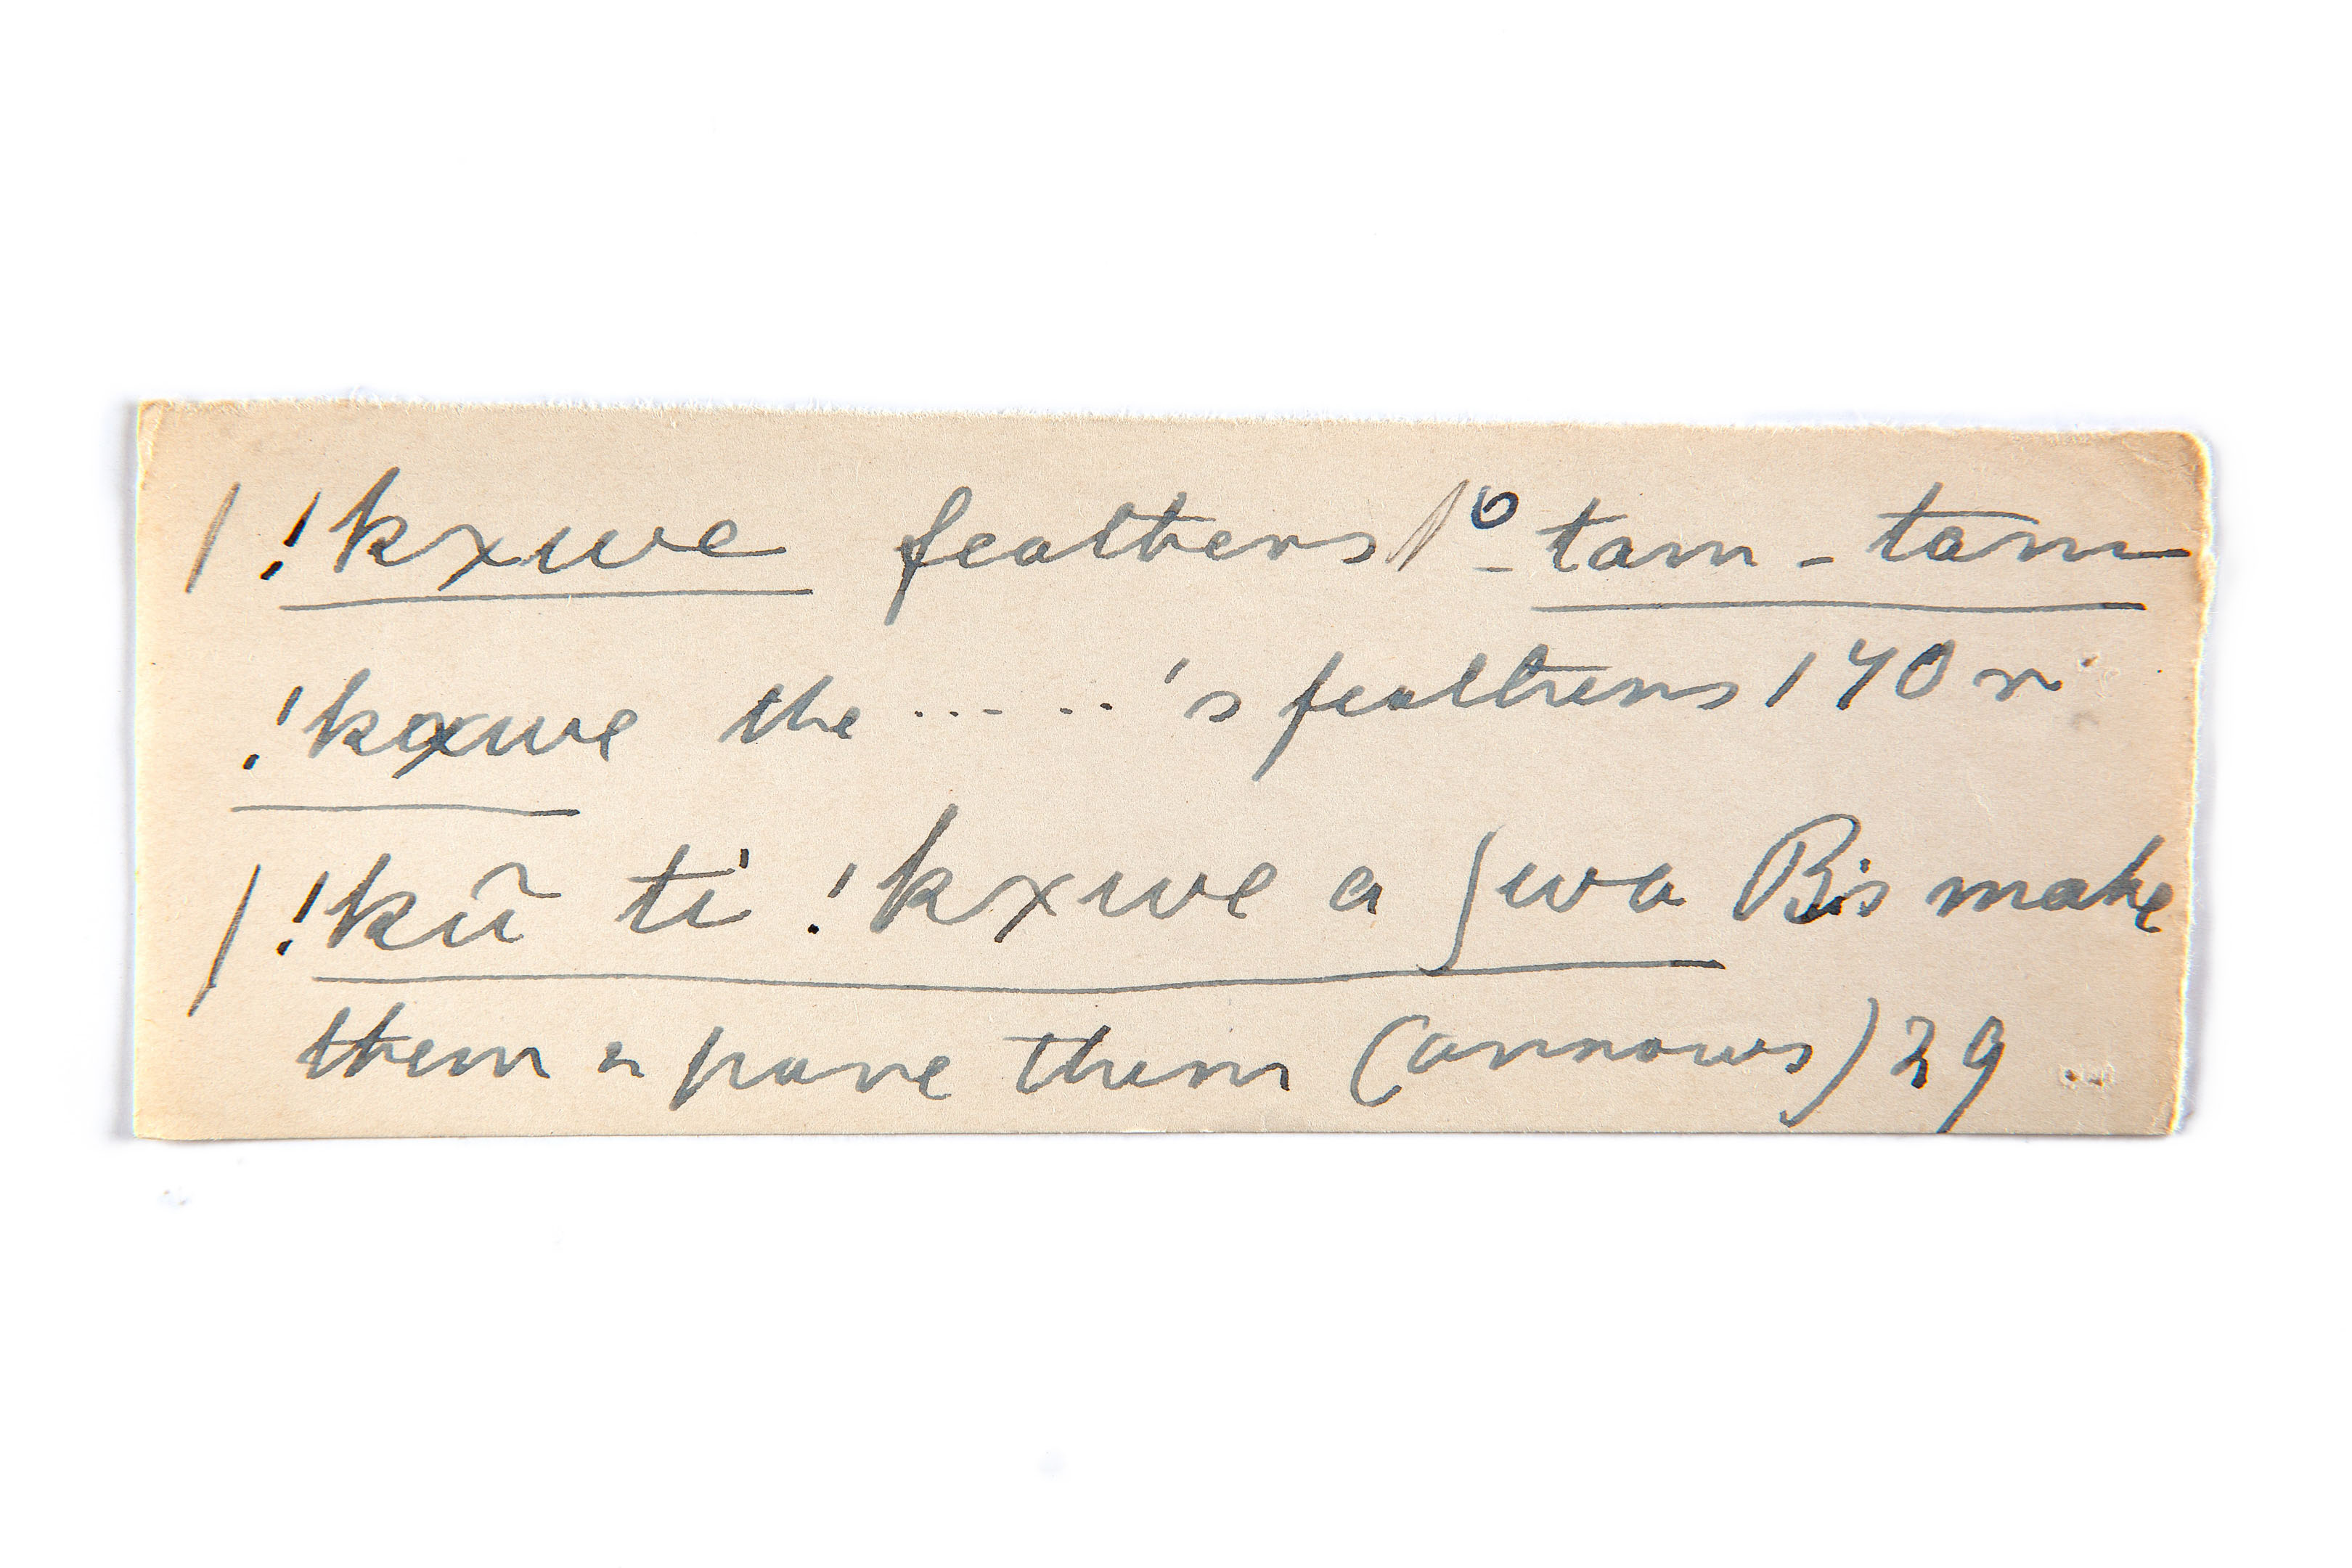 / !kxwe feathers / o - tam - tam
!kxwe the ..... 's feathers 140 r
/ !kũ ti !kxwe a ʃwa Bis make
them & pare them (arrows) 29